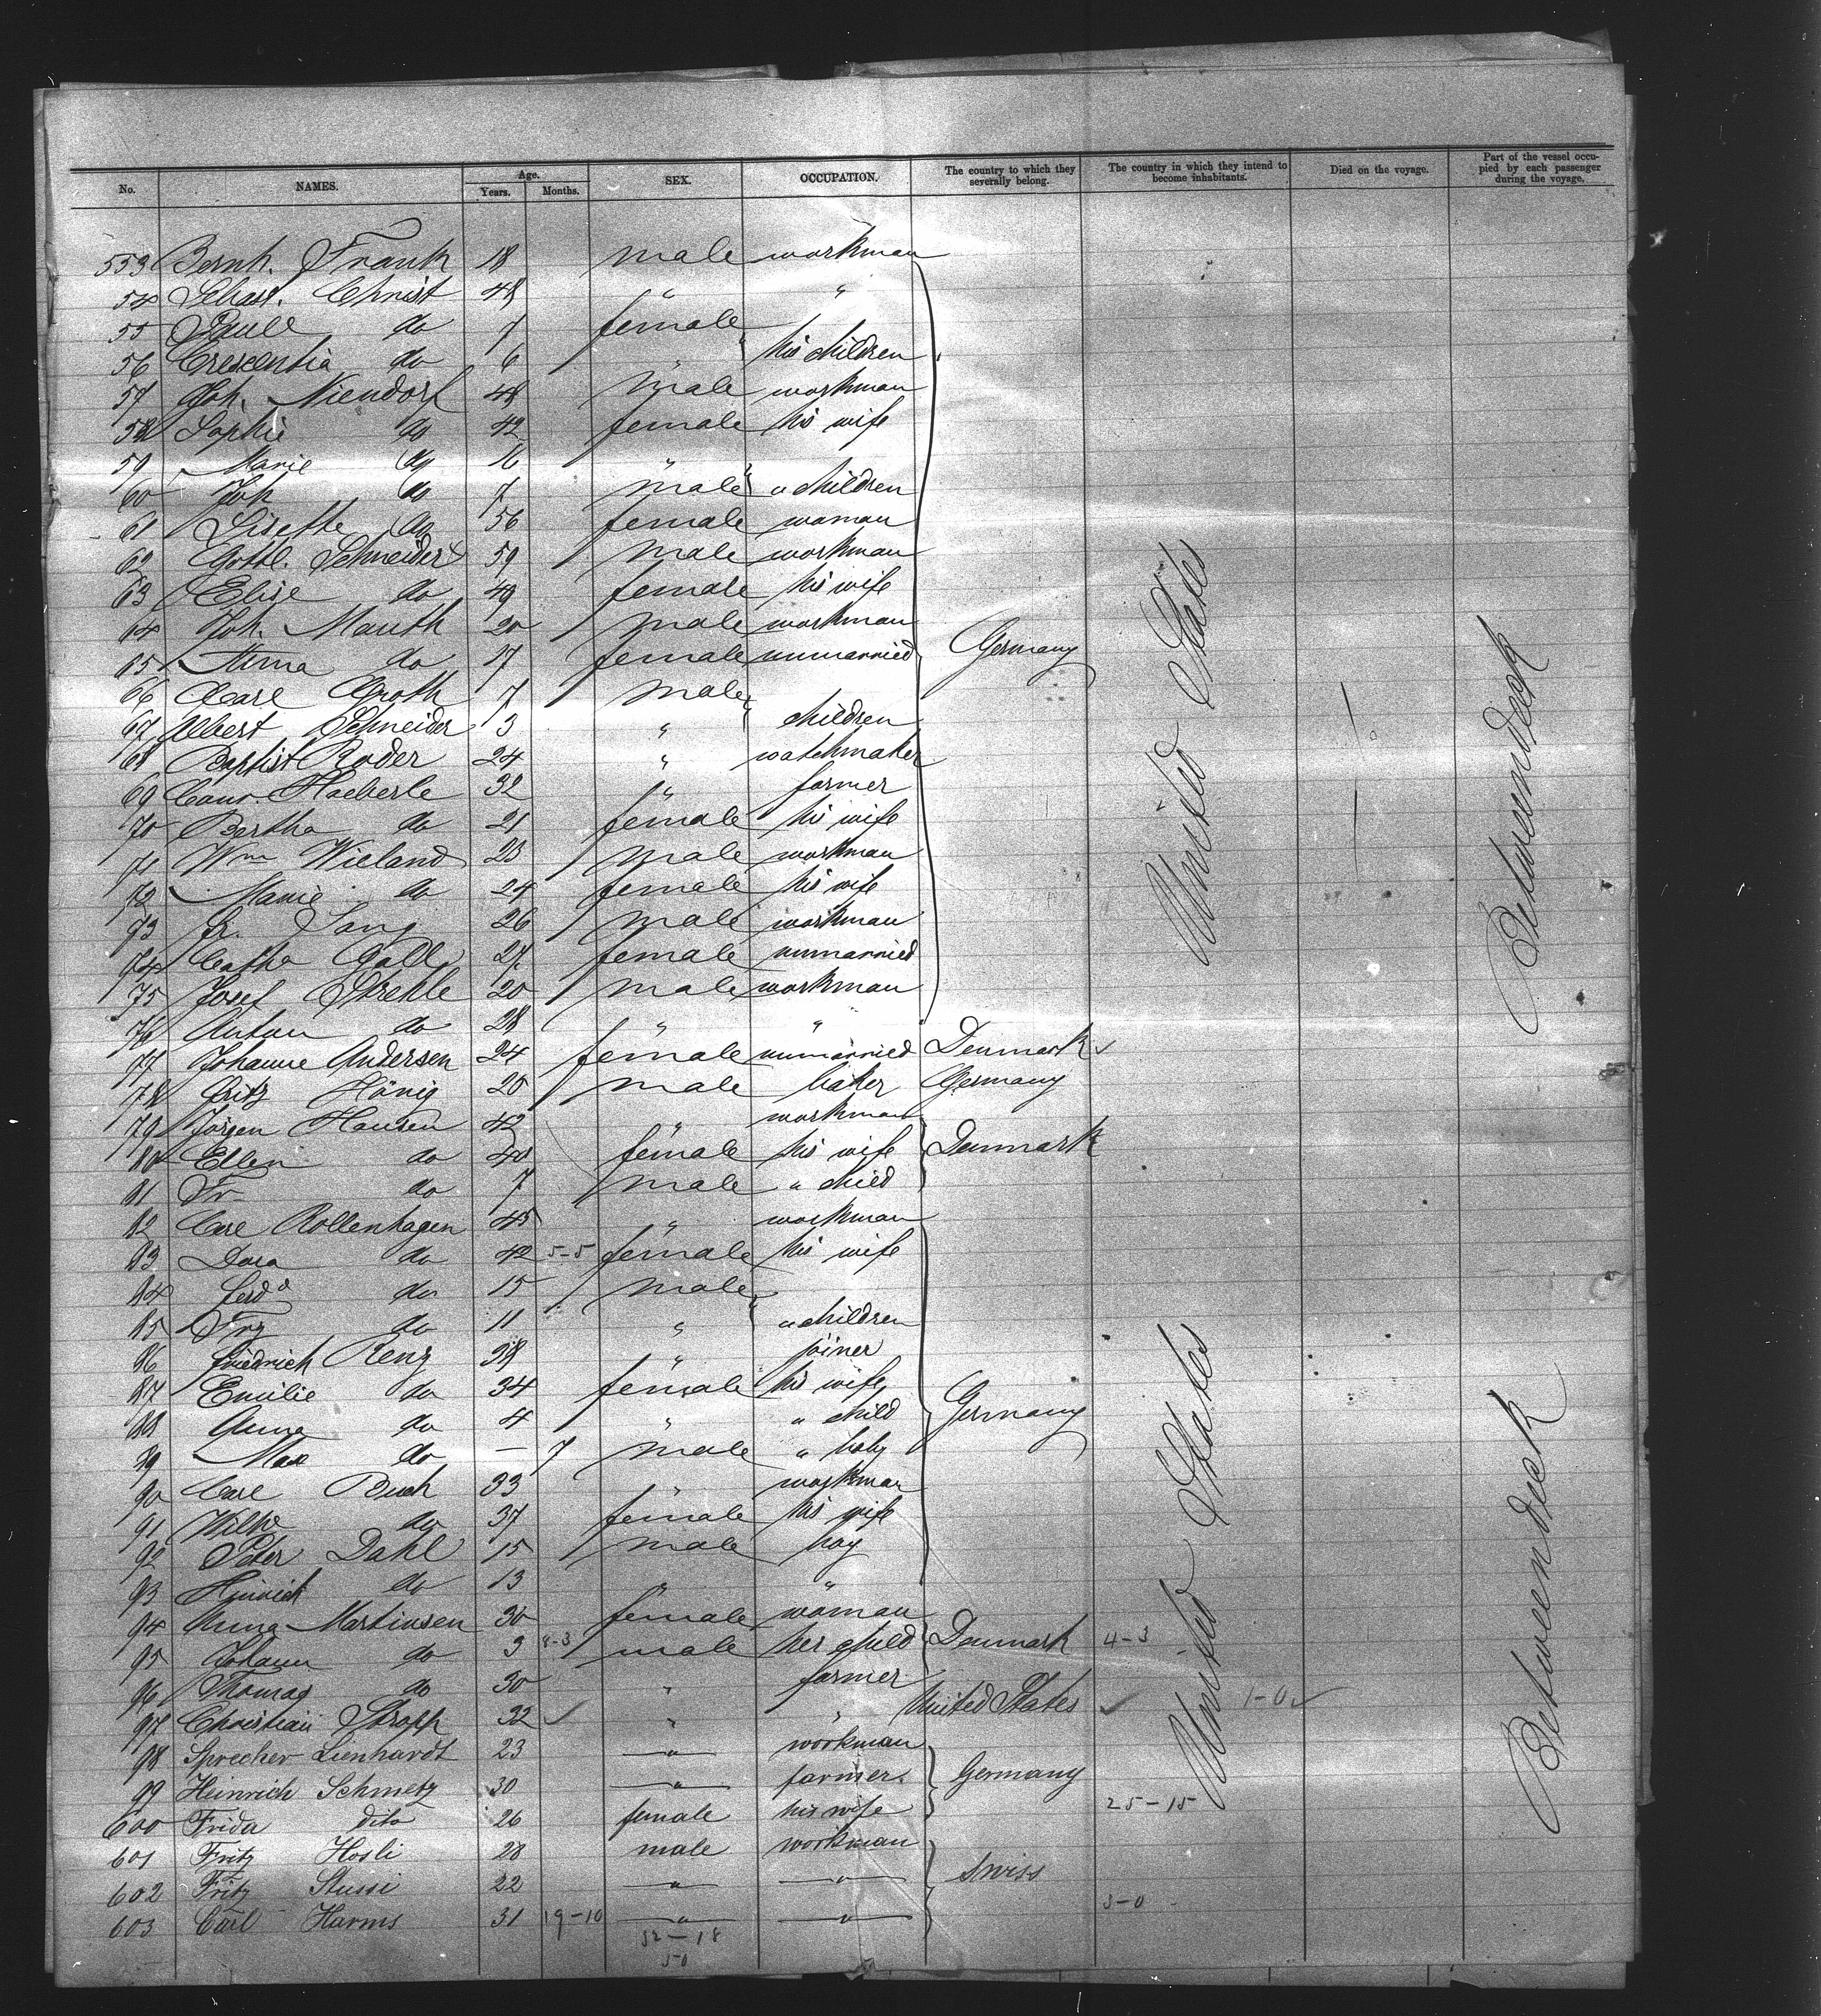 No. NAMES. Age. Years. Months. SEX. OCCUPATION. The country to which they severally belong. The country in which they intend to become inhabitants. Died on the voyage. Part of the vessel occupied by each passenger during the voyage.
553 Bernh. Frank 18 male workman
54 Sebast. Christ 48 " "
55 do 7 female
56 Crescentia do 6 " his children
57 Joh. Niendorf 48 male workman
58 Sophie do 42 female his wife
59 Marie do 16 "
60 Joh do 7 male " children
61 Lisette do 56 female woman
62 Gottl. Schneider 59 male workman
63 Elise do 49 female his wife
64 Joh. Mauth 20 male workman
65 Anna do 17 female unmarried Germany
66 Carl Groth 7 male
67 Albert Schneider 3 " children
68 Baptist Roder 24 " watchmaker
69 Conr. Haeberle 32 " farmer
70 Bertha do 21 female his wife
71 Wm Wieland 23 male workman
72 Marie do 24 female his wife
73 Fr. Lang 26 male workman
74 Catha Galli 27 female unmarried
75 Josef Strehle 20 male workman
76 Anton do 28 " "
77 Johanne Andersen 24 female unmarried Denmark
78 Fritz König 20 male baker Germany
79 Jörgen Hansen 42 " workman
80 Ellen do 40 female his wife Denmark
81 Fr do 7 male " child
82 Carl Rollenhagen 45 " workman
83 Dora do 42 5-5 female his wife
84 Ferdd do 15 male
85 Frz do 11 " " children
86 Friedrich Renz 38 " joiner
87 Emilie do 34 female his wife
88 Anna do 4 " " child Germany
89 Max do — 7 male " baby
90 Carl Buch 33 " workman
91 Wilhe do 37 female his wife
92 Peter Dahl 15 male boy
93 Hinrich do 13 " "
94 Anna Martinsen 30 female woman
95 Johann do 3 8-3 male her child Denmark 4-3
96 Thomas do 30 " farmer
97 Christian Stropp 32 " " United States 1-0
98 Sprecher Lienhardt 23 " workman
99 Heinrich Schmetz 30 " farmer Germany
600 Frida dito 26 female his wife 25-15
601 Fritz Hosli 28 male workman
602 Fritz Stussi 22 " " Swiss
603 Carl Harms 31 19-10 " " 3-0
32-18
50
United States
Betweendeck
United States
Betweendeck